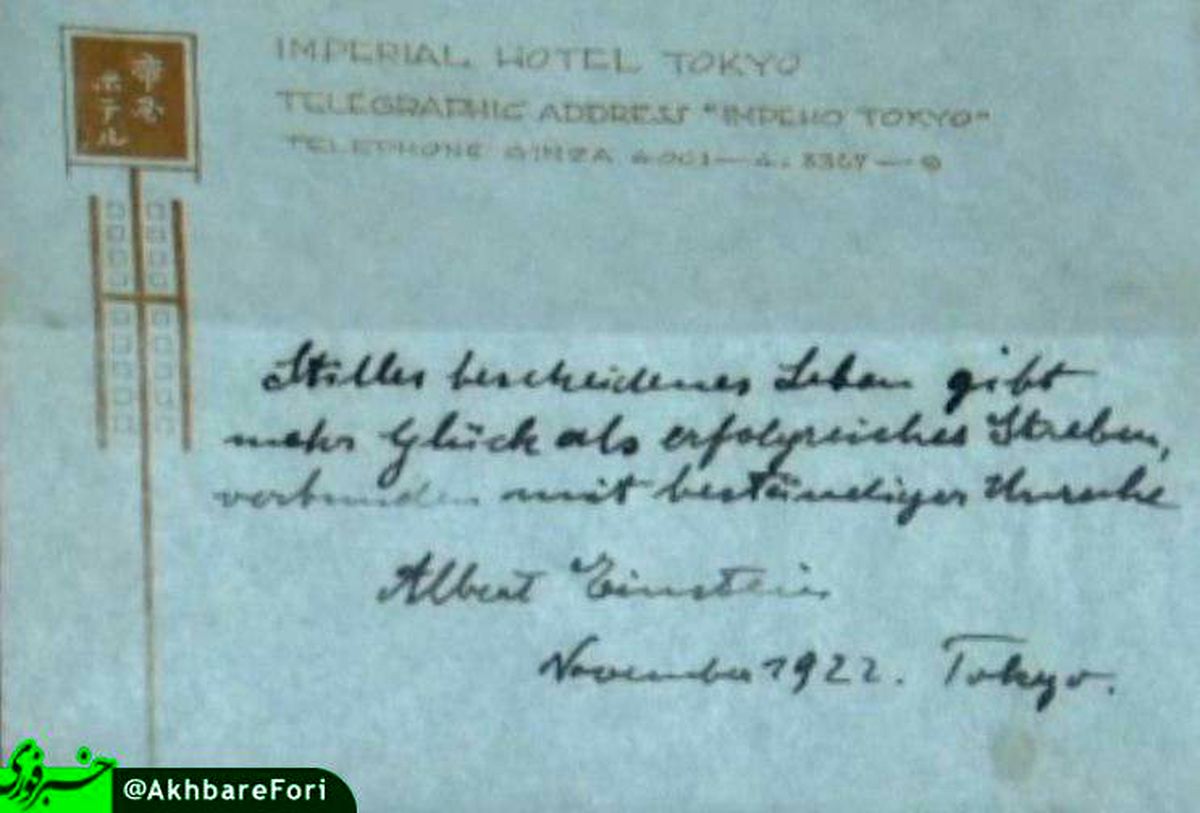 帝国
ホテル
IMPERIAL HOTEL TOKYO
TELEGRAPHIC ADDRESS "IMPEHO TOKYO"
TELEPHONE GINZA
Stilles bescheidenes Leben gibt
mehr Glück als erfolgreiches Streben,
verbunden mit beständiger Unruhe
Albert Einstein
November 1922. Tokyo.
خبرفوری
@AkhbareFori